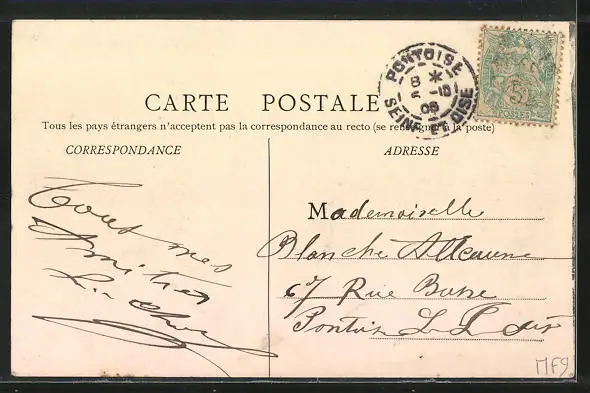 PONTOISE
8 *
5 -10
08
SEINE-ET-OISE
5c
POSTES
CARTE POSTALE
Tous les pays étrangers n'acceptent pas la correspondance au recto (se renseigner à la poste)
CORRESPONDANCE
ADRESSE
Tout mes
Amitiés
Mademoiselle
Blanche Alleaume
67 Rue Basse
Pontoise S. & Oise
MF9